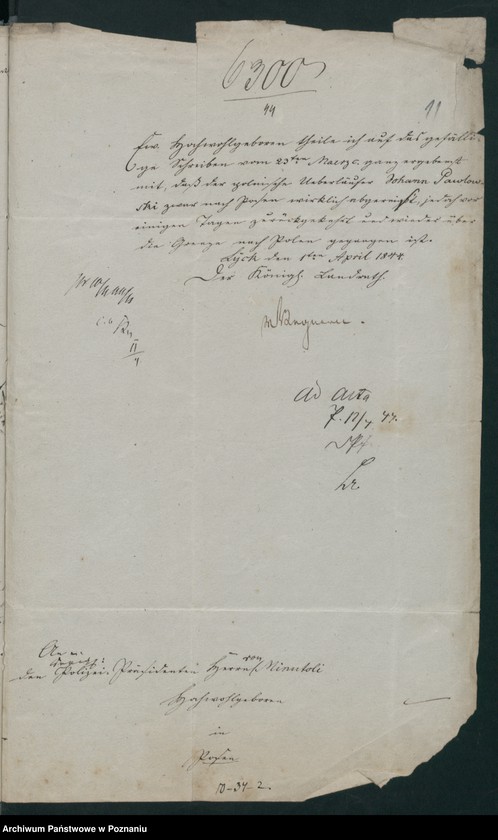 6300
44
11
Ew. Hochwohlgeboren theile ich auf das gefälli-
ge Schreiben vom 23ten Maerz c. ganz ergebenst
mit, daß der polnische Ueberläufer Johann Pawlow-
ski zwar nach Posen wirklich abgereist, jedoch vor
einigen Tagen zurückgekehrt und wieder über
die Grenze nach Polen gegangen ist.
Lyck den 1ten April 1844.
Der Königl. Landrath
ad acta
P. 12/4 44.
An
den Polizei-Präsidenten Herrn von Minutoli
Hochwohlgeboren
in
Posen
10-34-2.
Archiwum Państwowe w Poznaniu